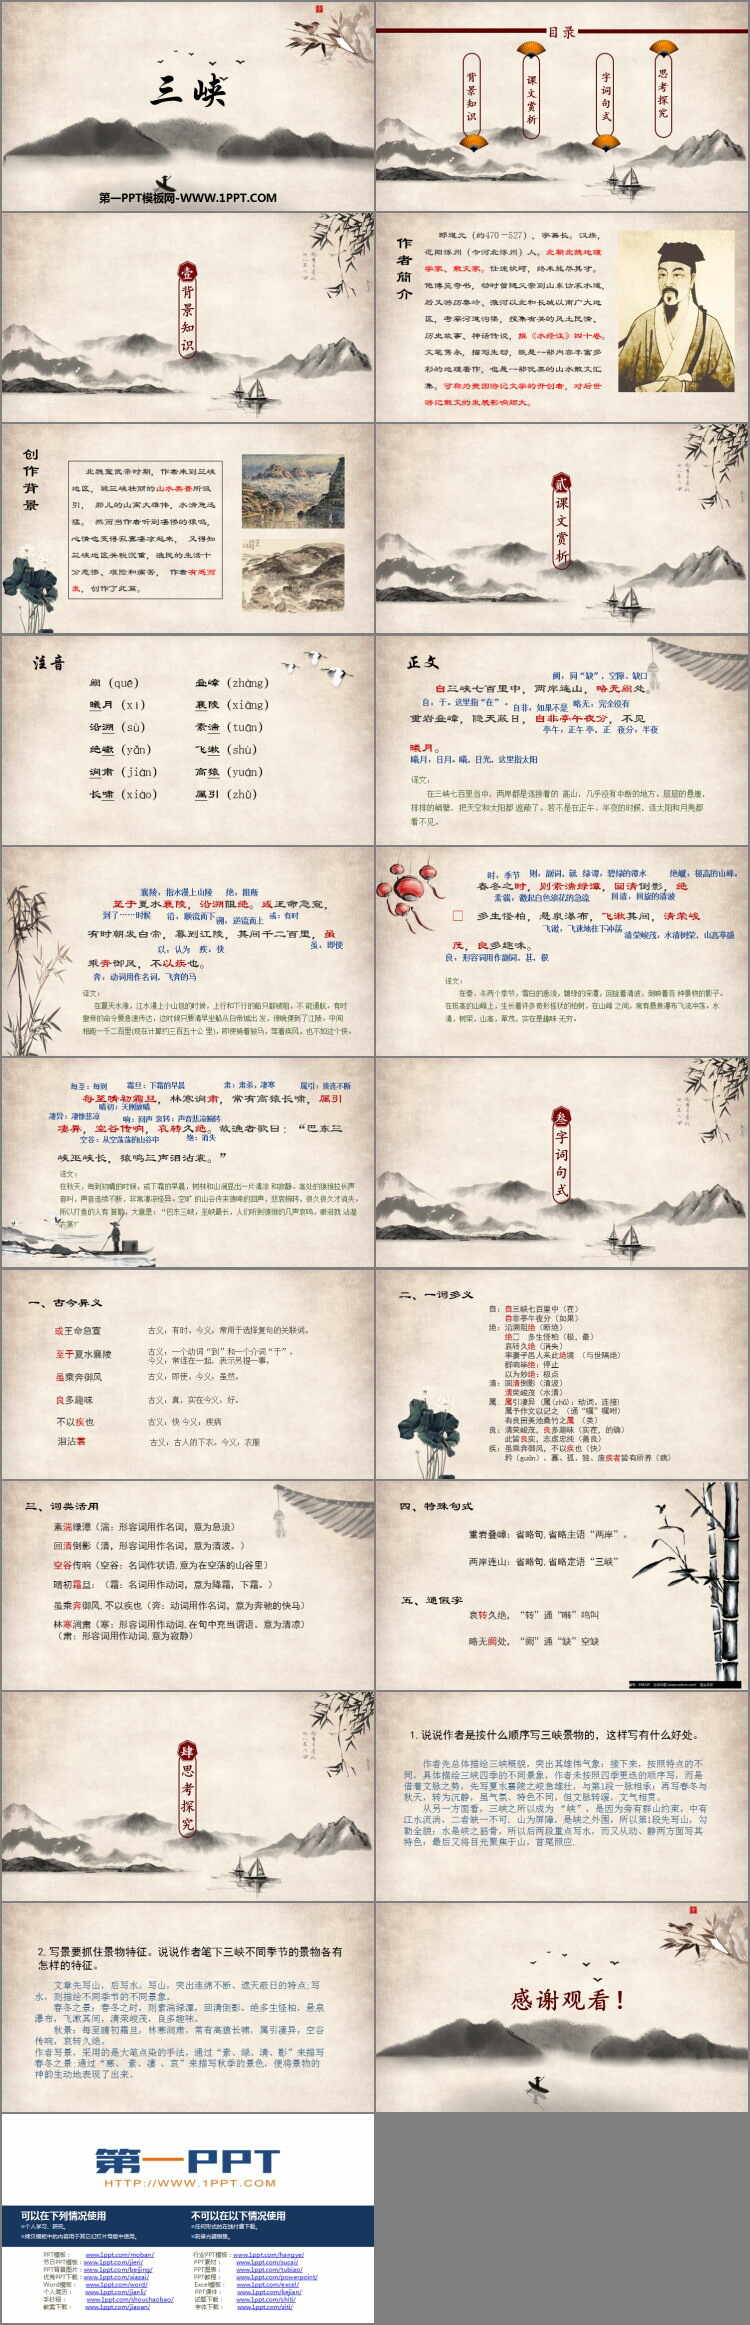 三峡
第一PPT模板网-WWW.1PPT.COM
目录
背景知识
课文赏析
字词句式
思考探究
壹
背景知识
作者简介
郦道元（约470－527），字善长。汉族，
范阳涿州（今河北涿州）人。北朝北魏地理
学家、散文家。仕途坎坷，终未能尽其才。
他博览奇书，幼时曾随父亲到山东访求水道，
后又游历秦岭、淮河以北和长城以南广大地
区，考察河道沟渠，搜集有关的风土民情、
历史故事、神话传说，撰《水经注》四十卷。
文笔隽永，描写生动，既是一部内容丰富多
彩的地理著作，也是一部优美的山水散文汇
集。可称为我国游记文学的开创者，对后世
游记散文的发展影响颇大。
创作背景
引， 那儿的山高大雄伟，水清急迅
猛。 然而当作者听到凄惨的猿鸣，
心情也变得寂寞凄凉起来， 又得知
三峡地区关税沉重，渔民的生活十
分悲惨、艰险和痛苦， 作者有感而
发，创作了此篇。
贰
课文赏析
注音
阙（quē） 叠嶂（zhàng）
曦月（xī） 襄陵（xiāng）
沿溯（sù） 素湍（tuān）
绝巘（yǎn） 飞漱（shù）
涧肃（jiàn） 高猿（yuán）
长啸（xiào） 属引（zhǔ）
正文
阙，同“缺”，空隙、缺口
自三峡七百里中，两岸连山，略无阙处。
自：于。这里指“在” 。 自非：如果不是 略无：完全没有
重岩叠嶂，隐天蔽日，自非亭午夜分，不见
亭午：正午 亭，正 夜分：半夜
曦月。
曦月，日月。曦，日光，这里指太阳
译文：
在三峡七百里当中，两岸都是连绵着的 高山，几乎没有中断的地方。层层的悬崖，
排排的峭壁，把天空和太阳都 遮蔽了。若不是在正午、半夜的时候，连太阳和月亮都
看不见。
襄陵，指水漫上山陵 绝，阻断
至于夏水襄陵，沿溯阻绝。或王命急宣，
到了……时候 沿，顺流而下 溯，逆流而上 或：有时
有时朝发白帝，暮到江陵，其间千二百里，虽
以，认为 疾，快 虽，即使
乘奔御风，不以疾也。
奔：动词用作名词，飞奔的马
译文：
在夏天水涨，江水漫上小山包的时候，上行和下行的船只都被阻，不 能通航。有时
皇帝的命令要急速传达，这时候只要清早坐船从白帝城出 发，傍晚便到了江陵，中间
相距一千二百里(现在计算约三百五十公 里)，即使骑着骏马，驾着疾风，也不如这个快。
时，季节 则，副词，就 绿潭，碧绿的潭水 绝巘，极高的山峰。
春冬之时，则素湍绿潭，回清倒影，绝
素湍，激起白色浪花的急流 回清，回旋的清波
□ 多生怪柏，悬泉瀑布，飞漱其间，清荣峻
飞漱，飞速地往下冲荡 清荣峻茂，水清树荣，山高草盛
茂，良多趣味。
良：形容词用作副词，甚，很
译文：
在春、冬两个季节，雪白的急流，碧绿的深潭，回旋着清波，倒映着各 种景物的影子。
在极高的山峰上，生长着许多奇形怪状的柏树，在山峰 之间，常有悬泉瀑布飞流冲荡。水
清，树荣，山高，草茂，实在是趣味 无穷。
每至：每到 霜旦：下霜的早晨 肃：肃杀，凄寒 属引：接连不断
每至晴初霜旦，林寒涧肃，常有高猿长啸，属引
凄异：凄惨悲凉 晴初：天刚放晴 响：回声 哀转：声音悲凉婉转
凄异，空谷传响，哀转久绝。故渔者歌曰：“巴东三
空谷：从空荡荡的山谷中 绝：消失
峡巫峡长，猿鸣三声泪沾裳。”
译文：
叁
字词句式
一、古今异义
或王命急宣 古义，有时，今义，常用于选择复句的关联词。
至于夏水襄陵 古义，一个动词“到”和一个介词“于”，
今义，常连在一起，表示另提一事。
虽乘奔御风 古义，即使，今义，虽然。
良多趣味 古义，真，实在今义，好。
不以疾也 古义：快 今义，疾病
泪沾裳 古义，古人的下衣，今义，衣服
二、一词多义
自：自三峡七百里中（在）
自非亭午夜分（如果）
绝：沿溯阻绝（断绝）
绝□ 多生怪柏（极，最）
哀转久绝（消失）
率妻子邑人来此绝境 （与世隔绝）
群响毕绝：停止
以为妙绝：极点
清：回清倒影（清波）
清荣峻茂（水清）
属：属引凄异（属(zhǔ)：动词，连接)
属予作文以记之 （通“嘱”嘱咐）
有良田美池桑竹之属 （类）
良：清荣峻茂，良多趣味（实在，的确）
此皆良实，志虑忠纯（善良）
疾：虽乘奔御风，不以疾也（快）
矜（guān）、寡、孤、独、废疾者皆有所养（病）
三、词类活用
素湍绿潭（湍：形容词用作名词，意为急流）
回清倒影（清，形容词用作名词，意为清波。）
空谷传响（空谷：名词作状语,意为在空荡的山谷里）
晴初霜旦：（霜：名词用作动词，意为降霜，下霜。）
虽乘奔御风,不以疾也（奔：动词用作名词,意为奔驰的快马）
林寒涧肃（寒：形容词用作动词,在句中充当谓语。意为清凉）
（肃：形容词用作动词,意为寂静）
四、特殊句式
重岩叠嶂：省略句,省略主语“两岸”。
两岸连山：省略句,省略定语“三峡”
五、通假字
哀转久绝，“转”通“啭”鸣叫
略无阙处，“阙”通“缺”空缺
肆
思考探究
1.说说作者是按什么顺序写三峡景物的，这样写有什么好处。
作者先总体描绘三峡概貌，突出其雄伟气象；接下来，按照特点的不
同，具体描绘三峡四季的不同景象。作者未按照四季更迭的顺序写，而是
借着文脉之势，先写夏水襄陵之峻急雄壮，与第1段一脉相承；再写春冬与
秋天，转为沉静，虽气氛、特色不同，但文脉转缓，文气相贯。
从另一方面看，三峡之所以成为 “峡”，是因为旁有群山约束，中有
江水流淌，二者缺一不可。山为屏障，是峡之外围，所以第1段先写山，勾
勒全貌；水是峡之筋骨，所以后两段重点写水，而又从动、静两方面写其
特色；最后又将目光聚焦于山，首尾照应.
2.写景要抓住景物特征。说说作者笔下三峡不同季节的景物各有
怎样的特征。
文章先写山，后写水。写山，突出连绵不断、遮天蔽日的特点;写
水，则描绘不同季节的不同景象。
春冬之景：春冬之时，则素湍绿潭，回清倒影，绝多生怪柏，悬泉
瀑布，飞漱其间，清荣峻茂，良多趣味。
秋景：每至晴初霜旦，林寒涧肃，常有高猿长啸，属引凄异，空谷
传响，哀转久绝。
作者写景，采用的是大笔点染的手法，通过“素、绿、清、影”来描写
春冬之景;通过“寒、 肃、凄 、哀”来描写秋季的景色，便将景物的
神韵生动地表现了出来。
感谢观看！
第一PPT
HTTP://WWW.1PPT.COM
可以在下列情况使用 不可以在以下情况使用
PPT模板： www.1ppt.com/moban/ 行业PPT模板：www.1ppt.com/hangye/
节日PPT模板：www.1ppt.com/jieri/ PPT素材： www.1ppt.com/sucai/
PPT背景图片：www.1ppt.com/beijing/ PPT图表： www.1ppt.com/tubiao/
优秀PPT下载：www.1ppt.com/xiazai/ PPT教程： www.1ppt.com/powerpoint/
Word模板： www.1ppt.com/word/ Excel模板：www.1ppt.com/excel/
个人简历： www.1ppt.com/jianli/ PPT课件： www.1ppt.com/kejian/
手抄报： www.1ppt.com/shouchaobao/ 试题下载： www.1ppt.com/shiti/
教案下载： www.1ppt.com/jiaoan/ 字体下载： www.1ppt.com/ziti/